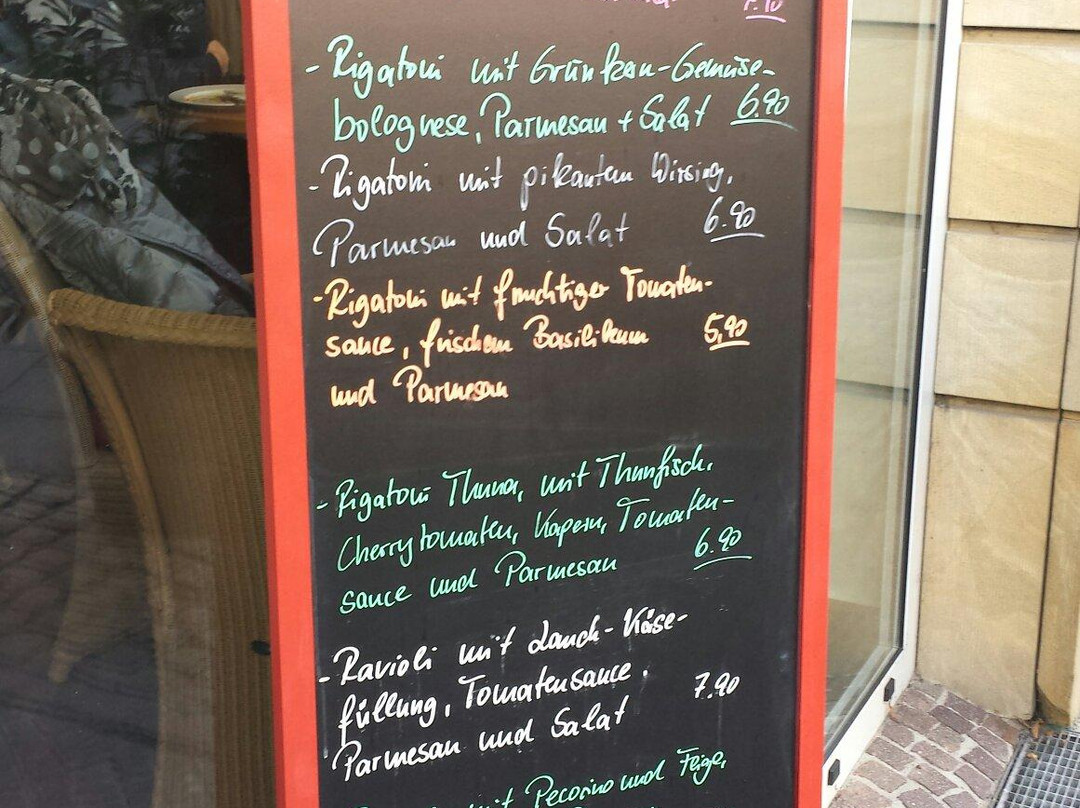 7.10
- Rigatoni mit Grünkern-Gemüse-
bolognese, Parmesan + Salat 6.90
- Rigatoni mit pikantem Wirsing,
Parmesan und Salat 6.90
- Rigatoni mit fruchtiger Tomaten-
sauce, frischem Basilikum 5,90
und Parmesan
- Rigatoni Thuna, mit Thunfisch,
Cherrytomaten, Kapern, Tomaten-
sauce und Parmesan 6.90
- Ravioli mit Lauch-Käse-
füllung, Tomatensauce,
Parmesan und Salat 7.90
mit Pecorino und Feige,